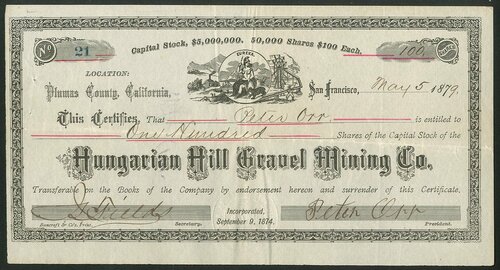 No. 21
Capital Stock, $5,000,000. 50,000 Shares $100 Each.
100 Shares
LOCATION:
Plumas County, California,
San Francisco, May 5 1879.
This Certifies, That Peter Orr is entitled to
One Hundred Shares of the Capital Stock of the
Hungarian Hill Gravel Mining Co.
Transferable on the Books of the Company by endorsement hereon and surrender of this Certificate.
Field
Peter Orr
Bancroft & Co's. Print
Secretary.
Incorporated,
September 9, 1874.
President.